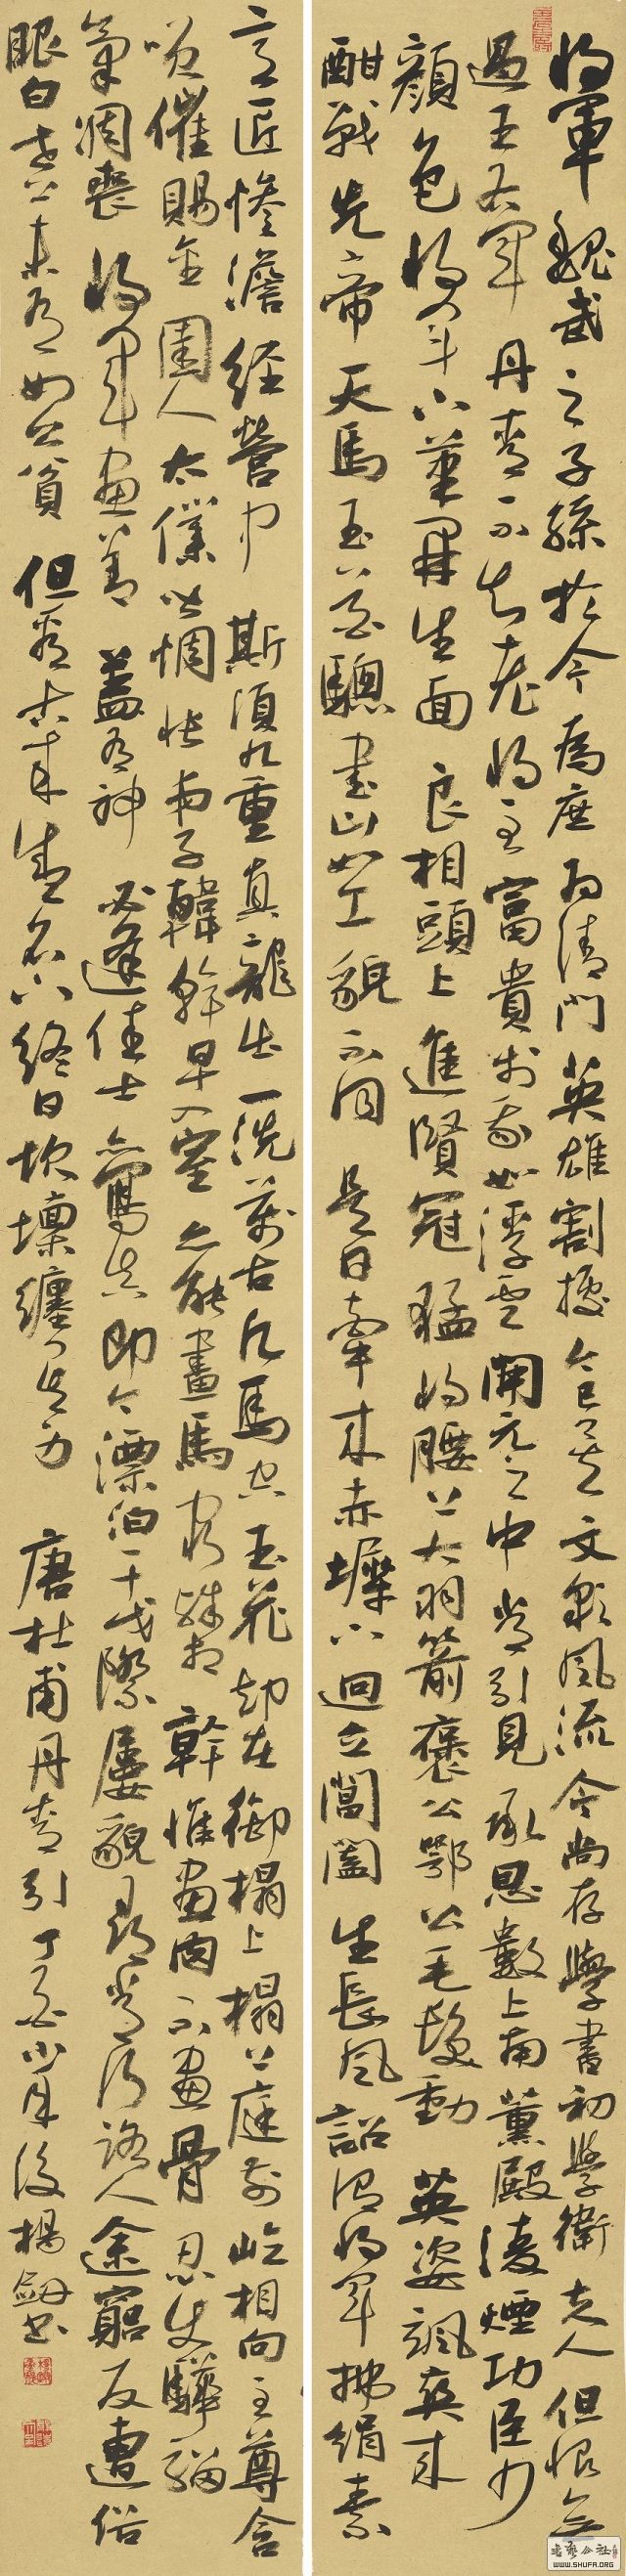 將軍魏武之子孫於今為庶為清門英雄割據今已矣文彩風流今尚存學書初學衛夫人但恨無
過王右軍丹青不知老將至富貴於我如浮雲開元之中常引見承恩數上南薰殿凌煙功臣少
顏色將軍下筆開生面良相頭上進賢冠猛將腰間大羽箭褒公鄂公毛髮動英姿颯爽來
酣戰先帝天馬玉花驄畫山如工貌不同是日牽來赤墀下迥立閶闔生長風詔謂將軍拂絹素
意匠慘澹經營中斯須九重真龍出一洗萬古凡馬空玉花卻在御榻上榻上庭前屹相向至尊含
笑催賜金圉人太僕皆惆悵弟子韓幹早入室亦能畫馬窮殊相幹惟畫肉不畫骨忍使驊騮
氣凋喪將軍畫善蓋有神必逢佳士亦寫真即今漂泊干戈際屢貌尋常行路人途窮反遭俗
眼白世上未有如公貧但看古來盛名下終日坎壈纏其身 唐杜甫丹青引丁酉小年後楊劍書
WWW.SHUFA.ORG